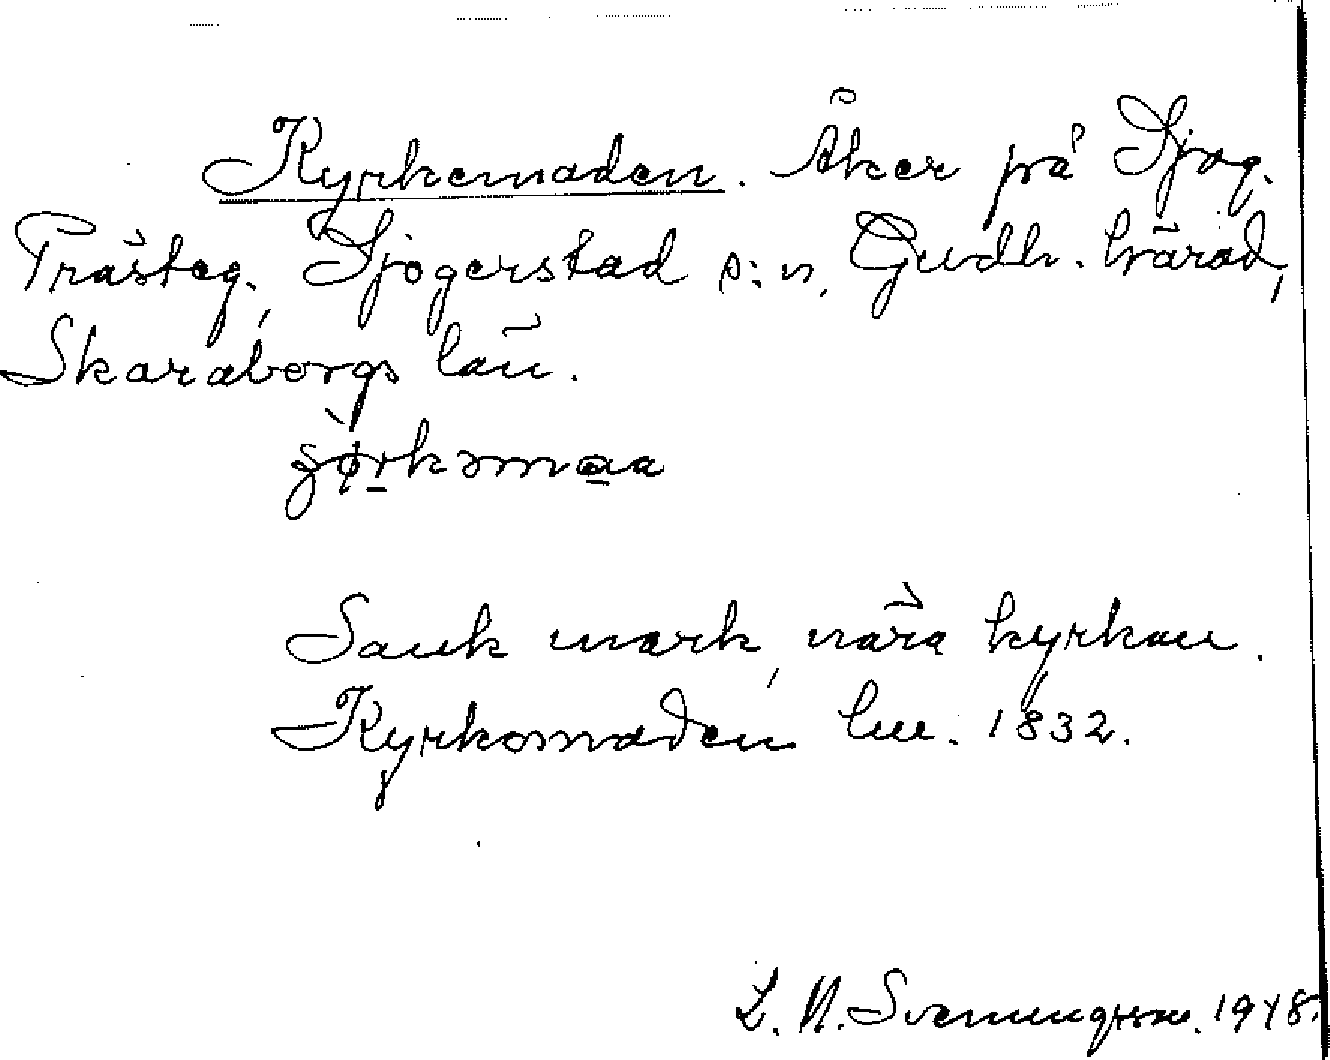 Kyrkemaden. Åker på Sjog.
Prästeg., Sjogerstad s:n, Gudh. härad,
Skaraborgs län.
Sank mark, nära kyrkan.
Kyrkomaden lm. 1832.
L. N. Svenungsson. 1948.